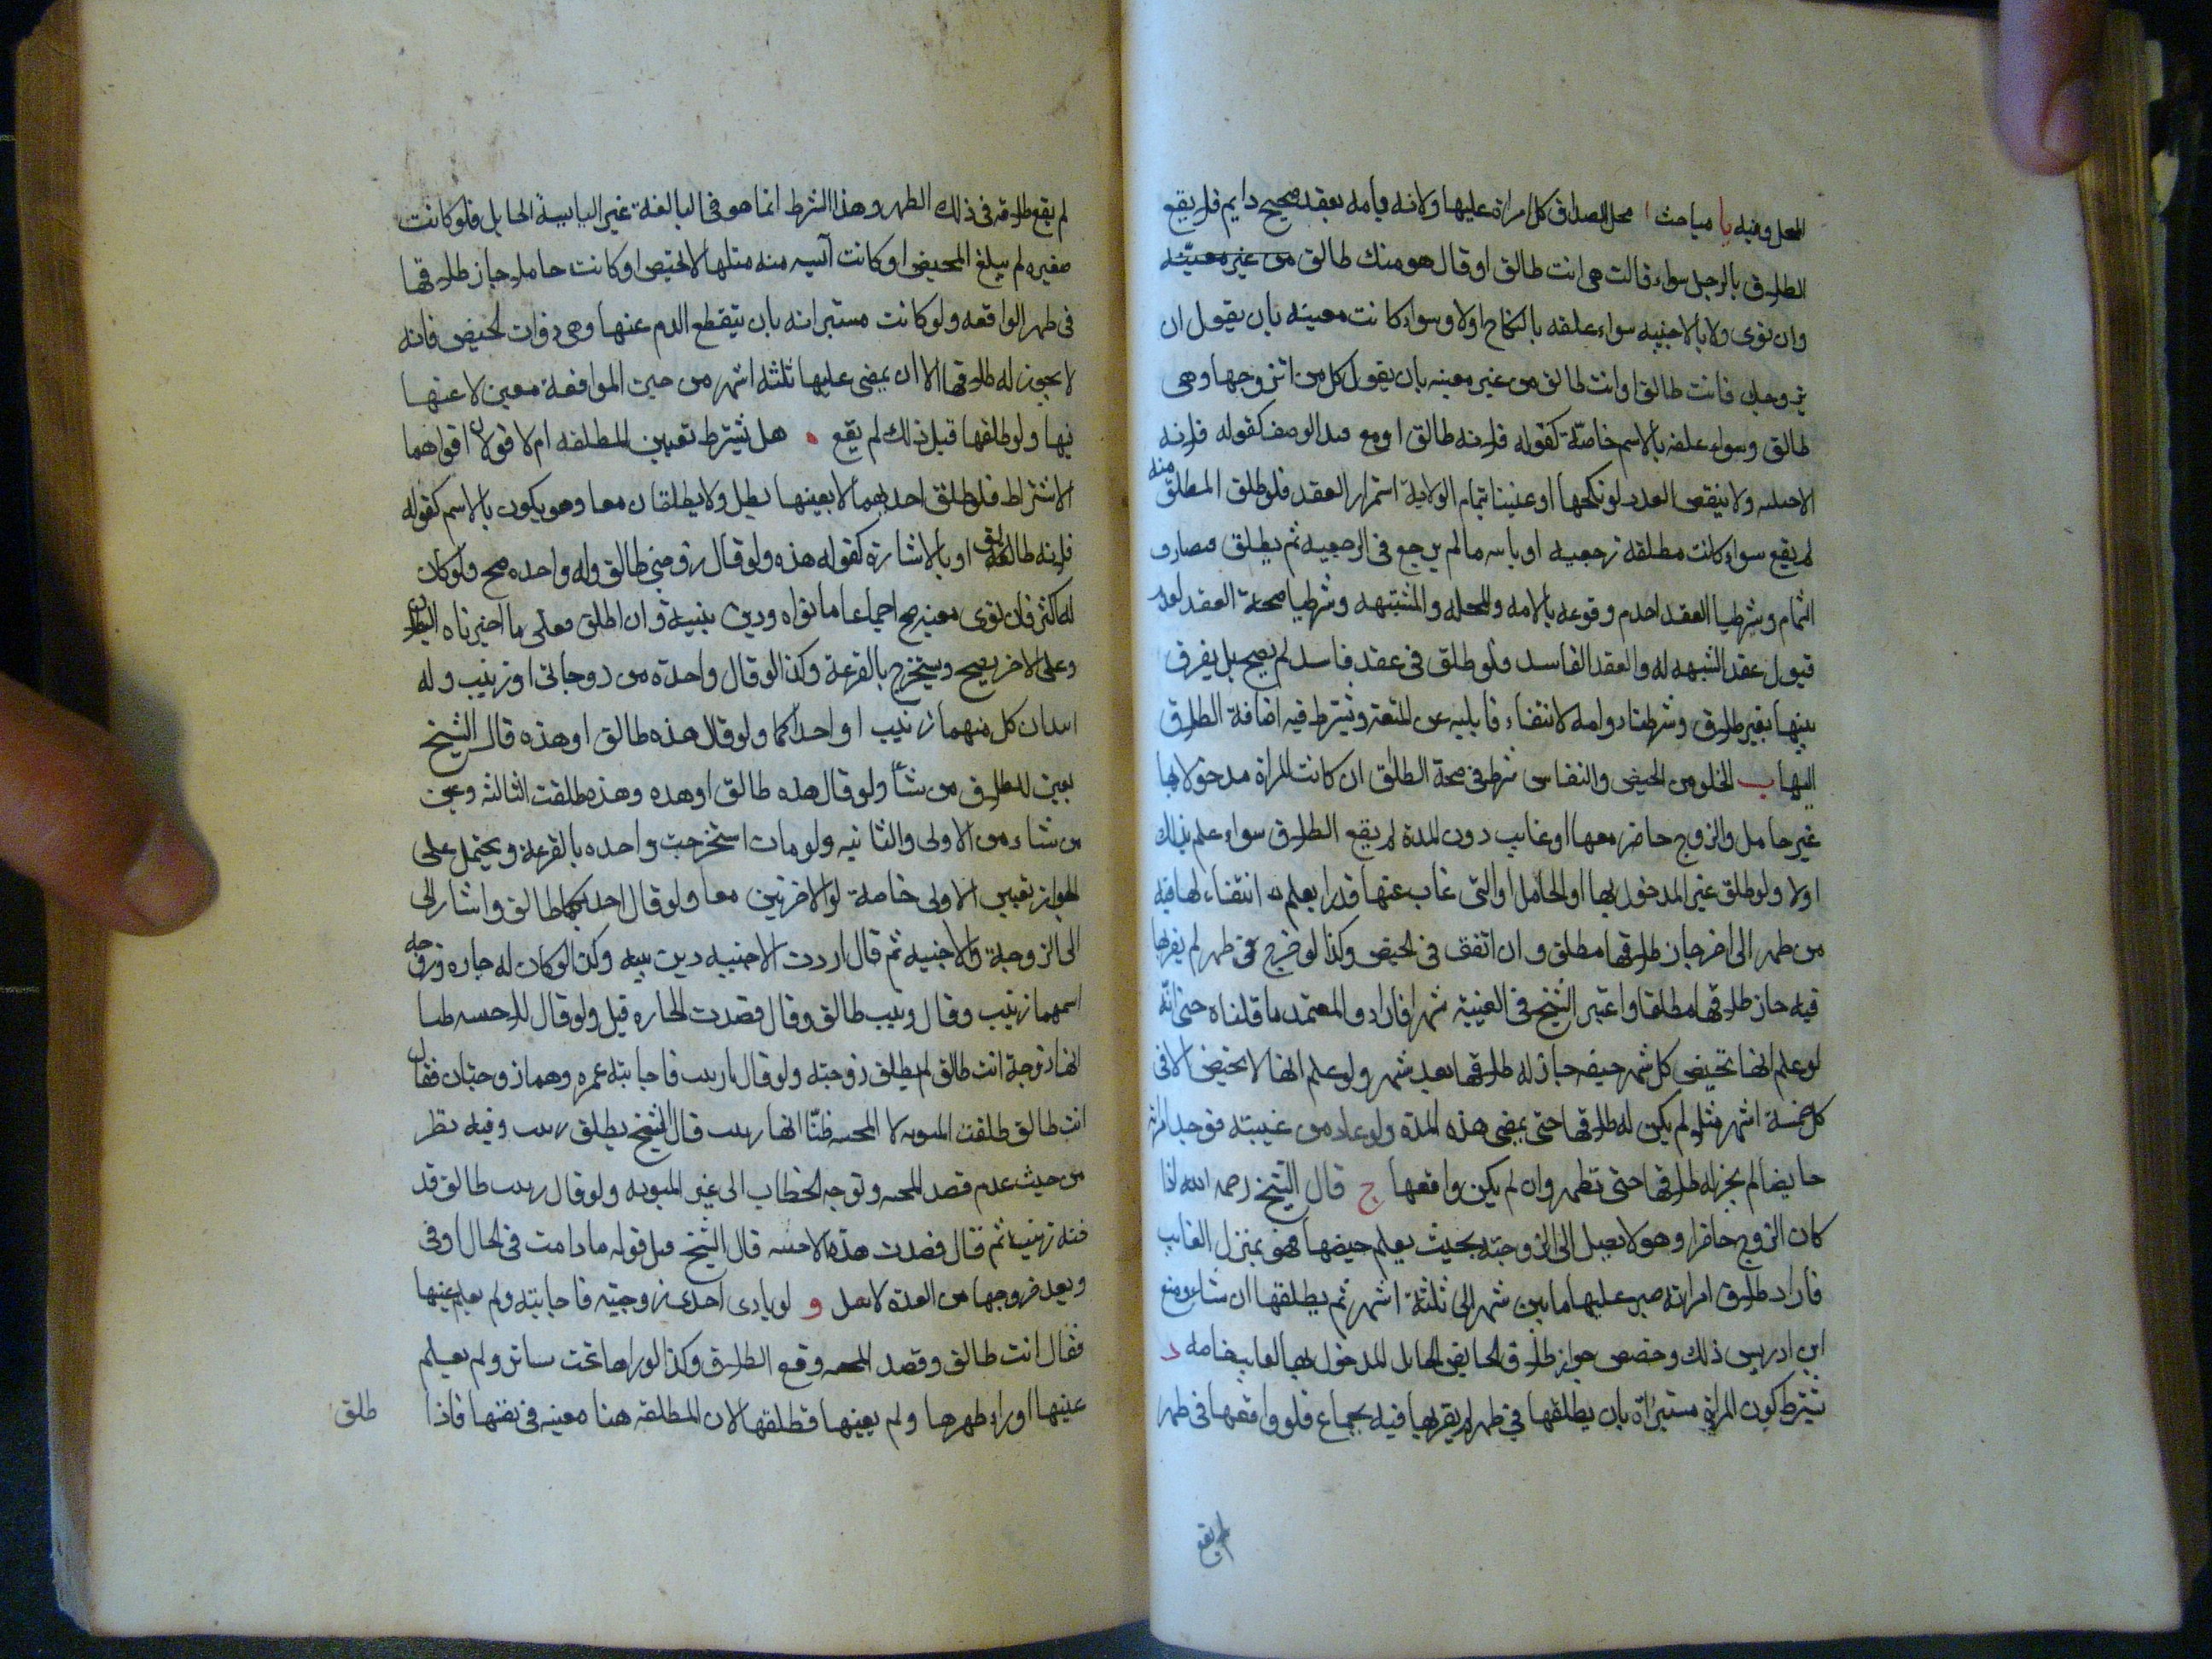 المحل وفيه يا مباحث ا محل الطلاق كل امراة عليها ولاية تامة بعقد صحيح دايم فلا يقع
الطلاق بالرجل سواء قالت هي انت طالق او قال هو منك طالق من غير معينه
وان نوى ولا بالاجنبيه سواء علقه بالنكاح اولا وسواء كانت معينه بان يقول ان
تزوجتك فانت طالق او انت طالق من غير معينه بان يقول كل من اتزوجها وهي
طالق وسواء علقه بالاسم خاصة كقوله فلانه طالق او مع الوصف كقوله فلانه
ولا ينقص العدد لو نكحها او عنينا بتمام الولاية استمرار العقد فلو طلق المطلقة منه
لم يقع سواء كانت مطلقه رجعيه او باينه ما لم يرجع في الرجعيه ثم يطلق
التمام وشرطنا العقد لعدم وقوعه بالامه والمحلله والمشتبهه وشرطنا صحة العقد لعدم
قبول عقد الشبهه له والعقد الفاسد فلو طلق في عقد فاسد لم يصح بل يفرق
بينها بغير طلاق وشرطنا دوامه لانتفاء قابليه عن المتعة ويشترط فيه اضافة الطلاق
اليها ب الخلو من الحيض والنفاس شرط في صحة الطلاق ان كانت المراة مدخولا بها
غير حامل والزوج حاضر معها او غايب دون المدة لم يقع الطلاق سواء علم بذلك
اولا ولو طلق غير المدخول بها او الحامل او التي غاب عنها قدرا يعلم انتقاءلها فيه
من طهر الى اخر جاز طلاقها مطلق وان اتفق في الحيض وكذا لو خرج في طهر لم يقربها
فيه جاز طلاقها مطلقا واعتبر الشيخ في الغيبة شهرا فازاد والمعتمد ما قلناه حتى انه
لو علم انها تحيض كل شهر حيضه جاز له طلاقها بعد شهر ولو علم انها لا تحيض الا في
كل خمسة اشهر مثلا لم يكن له طلاقها حتى يمضى هذه المدة ولو عاد من غيبته فوجد امراته
حايضا لم يجز له طلاقها حتى تطهر وان لم يكن واقعها ج قال الشيخ رحمه الله اذا
كان الزوج حاضرا وهو لا يصل الى الزوجته بحيث يعلم حيضها فهو بمنزل الغايب
فاراد طلاق امراته صبر عليها ما بين شهر الى ثلثة اشهر ثم يطلقها ان شاء ومنع
ابن ادريس ذلك وخصص جواز طلاق الحايض الحايل المدخول بها الغايب خاصه د
يشترط كون المراة مستبراة بان يطلقها في طهر لم يقربها فيه بجماع فلو واقعها في طهر
لم يقع
لم يقع طلاقه في ذلك الطهر وهذا الشرط انما هو في البالغة غير اليايسة الحايل فلو كانت
صغيره لم يبلغ المحيض او كانت آيسه منه مثلها لا تحيض او كانت حاملا جاز طلاقها
في طهر الواقعه ولو كانت مسترابه بان ينقطع الدم عنها وهي ذوات الحيض فانه
لا يجوز له طلاقها الا ان يمضى عليها ثلثه اشهر من حين الموافعة معين لا عنها
فيها ولو طلقها قبل ذلك لم يقع ه هل يشترط تعيين المطلقه ام لا قولان اقواهما
الاشتراط فلو طلق احديهما لا بعينها بطل ولا يطلقان معا وهو يكون بالاسم كقوله
فلانه طالق او بالاشارة كقوله هذه ولو قال زوجتي طالق وله واحده صح ولو كان
له اكثر فان نوى معينه صح اجماعا ما نواه ودين بنيته وان اطلق فعلى ما اخبرناه البطلان
وعلى الاخر يصح ويستخرج بالقرعة وكذا لو قال واحدة من زوجاتي او زينب وله
كل منهما زينب او احداكما ولو قال هذه طالق او هذه قال الشيخ
يعين للطلاق من شأ ولو قال هذه طالق او هذه وهذه طلقت الثالثه وعين
من شاء من الاولى والثانيه ولو مات استخرجت واحده بالقرعة ويحتمل على
الجواز تعيين الاولى خاصة او الاخرتين معا ولو قال احديكما طالق واشار الى
الى الزوجة والاجنبيه ثم قال اردت الاجنبيه دين بنيته وكذا لو كان له جاره وزوجه
اسمهما زينب وقال زينب طالق وقال قصدت الجاره قبل ولو قال للاجنبيه ظنا
انها زوجة انت طالق لم يطلق زوجته ولو قال يا زينب فاجابته عمره وهما زوجتان فقال
انت طالق طلقت المنويه لا المجيبه ظنّا انها زينب قال الشيخ يطلق زينب وفيه نظر
من حيث عدم قصد المجيبه وتوجه الخطاب الى غير المنويه ولو قال زينب طالق قد
زينب ثم قال قصدت هذه الاجنبيه قال الشيخ قبل قوله ما دامت في الحال او في
وبعد خروجها من العدة لا يقبل و لو نادى احدى زوجتيه فاجابته ولم يعلم عينها
فقال انت طالق وقصد المجيبه وقع الطلاق وكذا لو راها تحت ساتر ولم يعلم
عينها او راء ظهرها ولم يعينها فطلقها لان المطلقه هنا معينه في نفسها فاذا
طلق